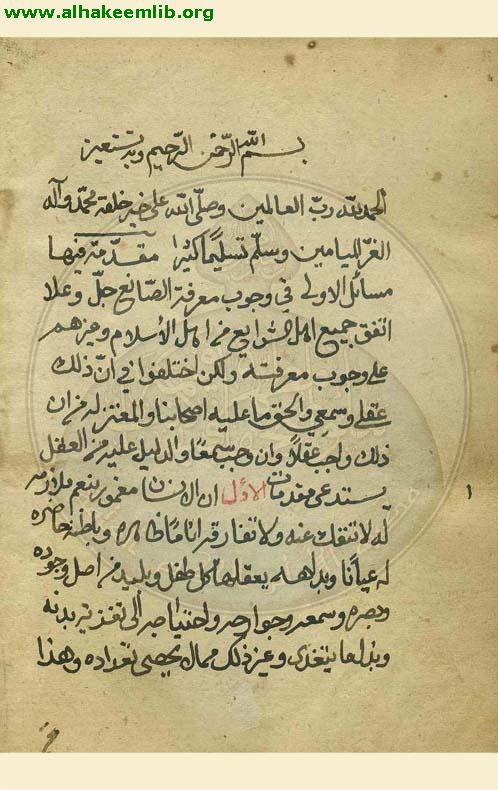 www.alhakeemlib.org
بسم الله الرحمن الرحيم وبه نستعين
الحمد لله ربّ العالمين وصلّى الله على خير خلقه محمّد وآله
الغرّ الميامين وسلّم تسليمًا كثيرًا مقدّمة فيها
مسائل الاولى في وجوب معرفة الصّانع جلّ وعلا
اتفق جميع اهل الشرايع من اهل الأسلام وغيرهم
على وجوب معرفته ولكن اختلفوا في انّ ذلك
عقلي وسمعي والحق ما عليه اصحابنا والمعتزله من ان
ذلك واجب عقلاً وان وجب سمعًا والدليل عليه من العقل
يستدعى مقدمات الأوّل ان الانسان مغمور بنعم ملازمة
له لا تنفك عنه ولا تفارقه انا مّا ظاهره وباطنه حاضره
له عيانًا وبداهه يعقلها كل طفل وبليد من اصل وجوده
وبصره وسمعه وجوارحه واحتياجه الى تغذية بدنه
وبذل ما يتغذى وغير ذلك مما لا يحصى تعداده وهذا
١